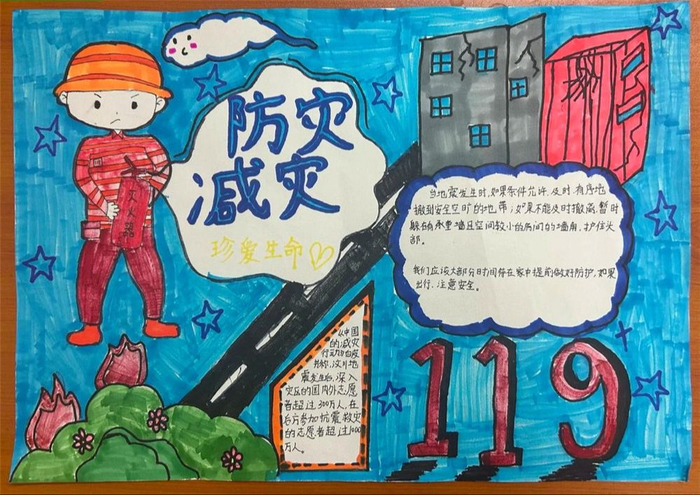 防灾
减灾
珍爱生命
灭火器
当地震发生时,如果条件允许,及时,有序地
撤到安全空旷的地带,如果不能及时撤离,暂时
躲在承重墙且空间较小的房间的墙角,护住头
部。
我们应该大部分时间待在家中提前做好防护,如果
出行,注意安全。
从中国
的减灾
行动白皮
书称,汶川地
震发生后,深入
灾区的国内外志愿
者超过300万人,在
后方参加抗震救灾
的志愿者超过1000
万人。
119